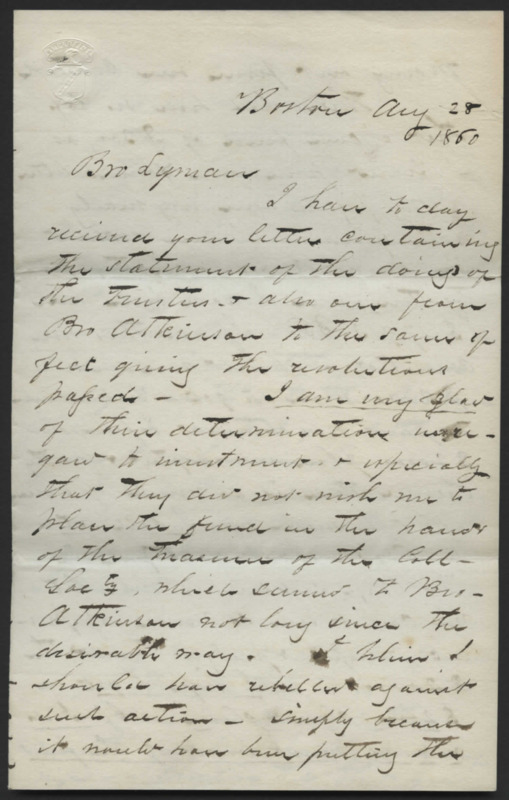 Boston Aug 28
1860
Bro Lyman
I have to day
received your letter containing
the statement of the doings of
the Trustees & also one from
Bro Atkinson to the same ef
fect giving the resolutions
passed - I am very glad
of their determination in re-
gard to investment & especially
that they did not wish me to
place the fund in the hands
of the Treasurer of the Coll-
Socty, which seemed to Bro-
Atkinson not long since the
desirable way. I think I
should have rebelled against
such action - simply because
it would have been putting the